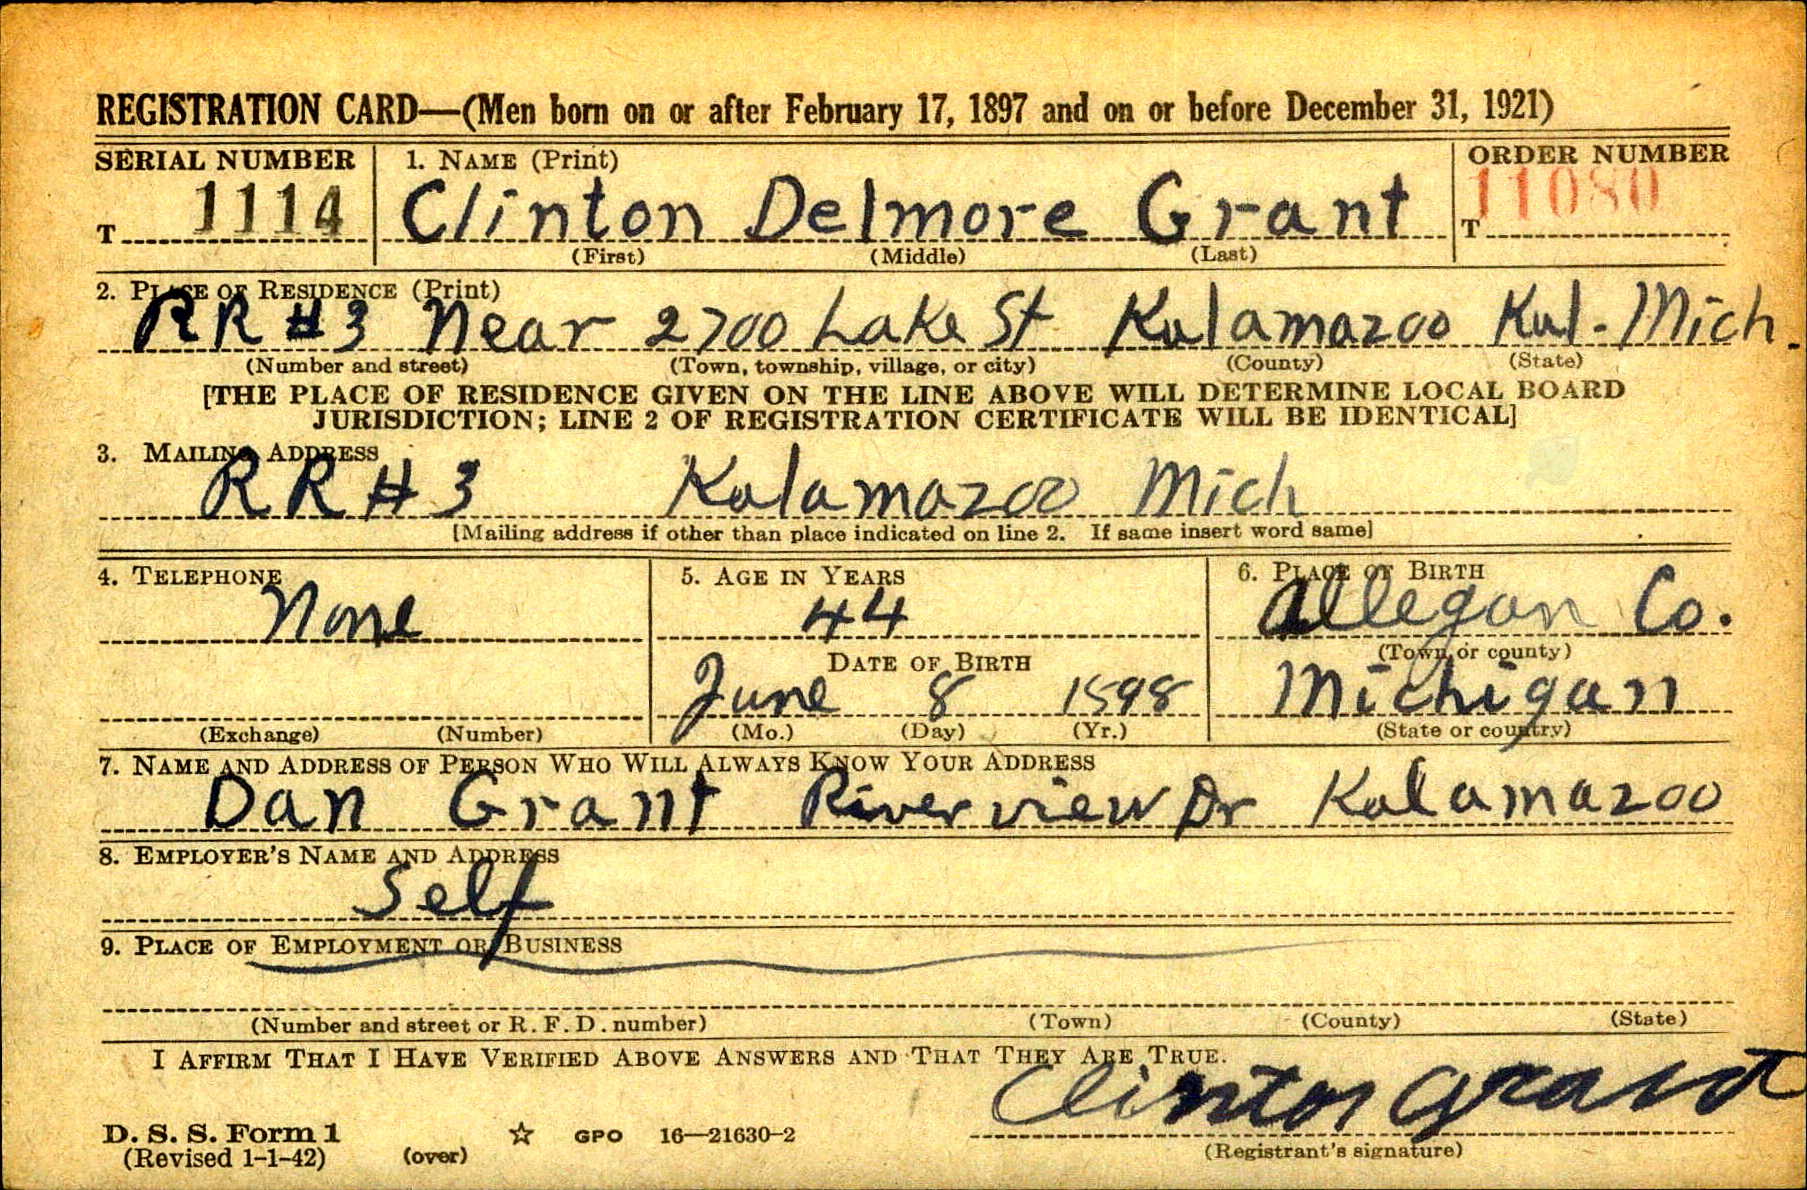 REGISTRATION CARD—(Men born on or after February 17, 1897 and on or before December 31, 1921)
SERIAL NUMBER 1. NAME (Print) ORDER NUMBER
T 1114 Clinton Delmore Grant T 11080
(First) (Middle) (Last)
2. PLACE OF RESIDENCE (Print)
RR #3 Near 2700 Lake St Kalamazoo Kal. Mich.
(Number and street) (Town, township, village, or city) (County) (State)
[THE PLACE OF RESIDENCE GIVEN ON THE LINE ABOVE WILL DETERMINE LOCAL BOARD
JURISDICTION; LINE 2 OF REGISTRATION CERTIFICATE WILL BE IDENTICAL]
3. MAILING ADDRESS
RR #3 Kalamazoo Mich
[Mailing address if other than place indicated on line 2. If same insert word same]
4. TELEPHONE 5. AGE IN YEARS 6. PLACE OF BIRTH
None 44 Allegan Co.
DATE OF BIRTH (Town or county)
June 8 1898 Michigan
(Exchange) (Number) (Mo.) (Day) (Yr.) (State or country)
7. NAME AND ADDRESS OF PERSON WHO WILL ALWAYS KNOW YOUR ADDRESS
Dan Grant Riverview Dr Kalamazoo
8. EMPLOYER'S NAME AND ADDRESS
Self
9. PLACE OF EMPLOYMENT OR BUSINESS
(Number and street or R. F. D. number) (Town) (County) (State)
I AFFIRM THAT I HAVE VERIFIED ABOVE ANSWERS AND THAT THEY ARE TRUE.
Clinton Grant
D. S. S. Form 1 GPO 16—21630-2
(Revised 1-1-42) (over) (Registrant's signature)